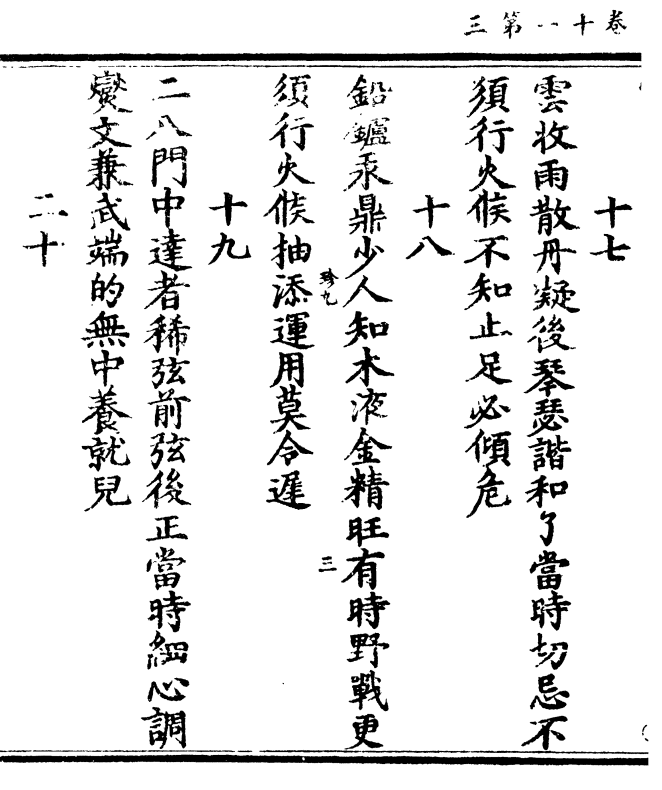 三第一十卷
十七
雲收雨散丹凝後琴瑟諧和了當時切忌不
須行火候不知止足必傾危
十八
鉛鑪汞鼎少人知木液金精旺有時野戰更
珍九
三
須行火候抽添運用莫令遲
十九
二八門中達者稀弦前弦後正當時細心調
爕文兼武端的無中養就兒
二十